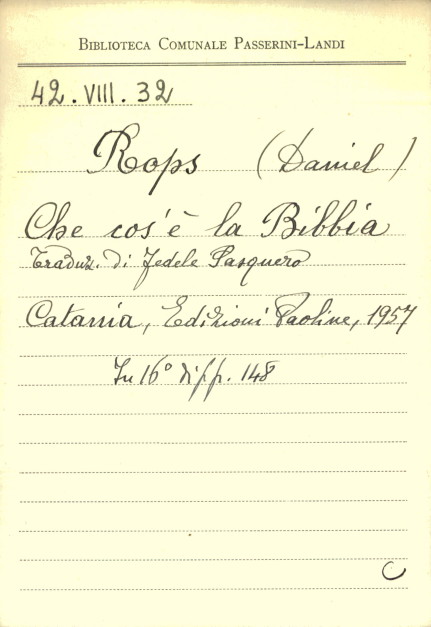 BIBLIOTECA COMUNALE PASSERINI-LANDI
42.VIII.32
Rops (Daniel)
Che cos'è la Bibbia
Traduz. di Fedele Pasquero
Catania, Edizioni Paoline, 1957
In 16° di pp. 148
C